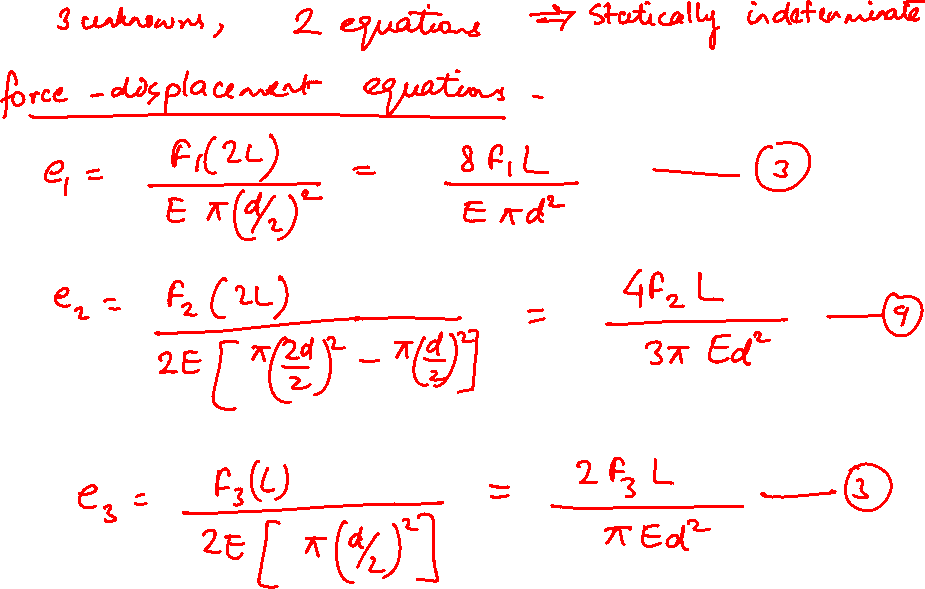 3 unknowns, 2 equations ⇒ statically indeterminate
force - displacement equations -
e₁ = F₁(2L) / (E π(d/2)²) = 8 F₁L / (E πd²) —— (3)
e₂ = F₂(2L) / (2E[π(2d/2)² - π(d/2)²]) = 4F₂L / (3π Ed²) —— (9)
e₃ = F₃(L) / (2E[π(d/2)²]) = 2F₃L / (π Ed²) —— (3)